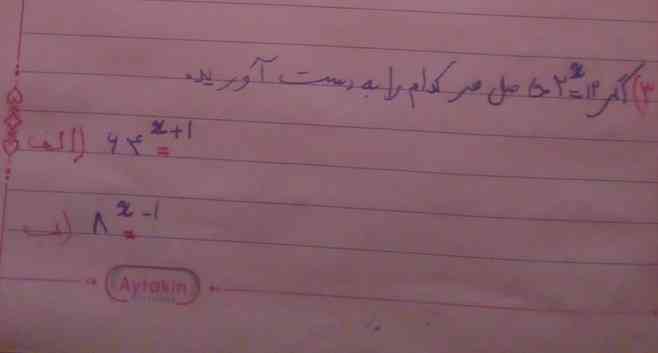 ۳) اگر ۲^x=۱۲ حاصل هر کدام را به دست آورید.
الف) ۶۴^x+۱ =
ب) ۸^x-۱ =
Aytakin